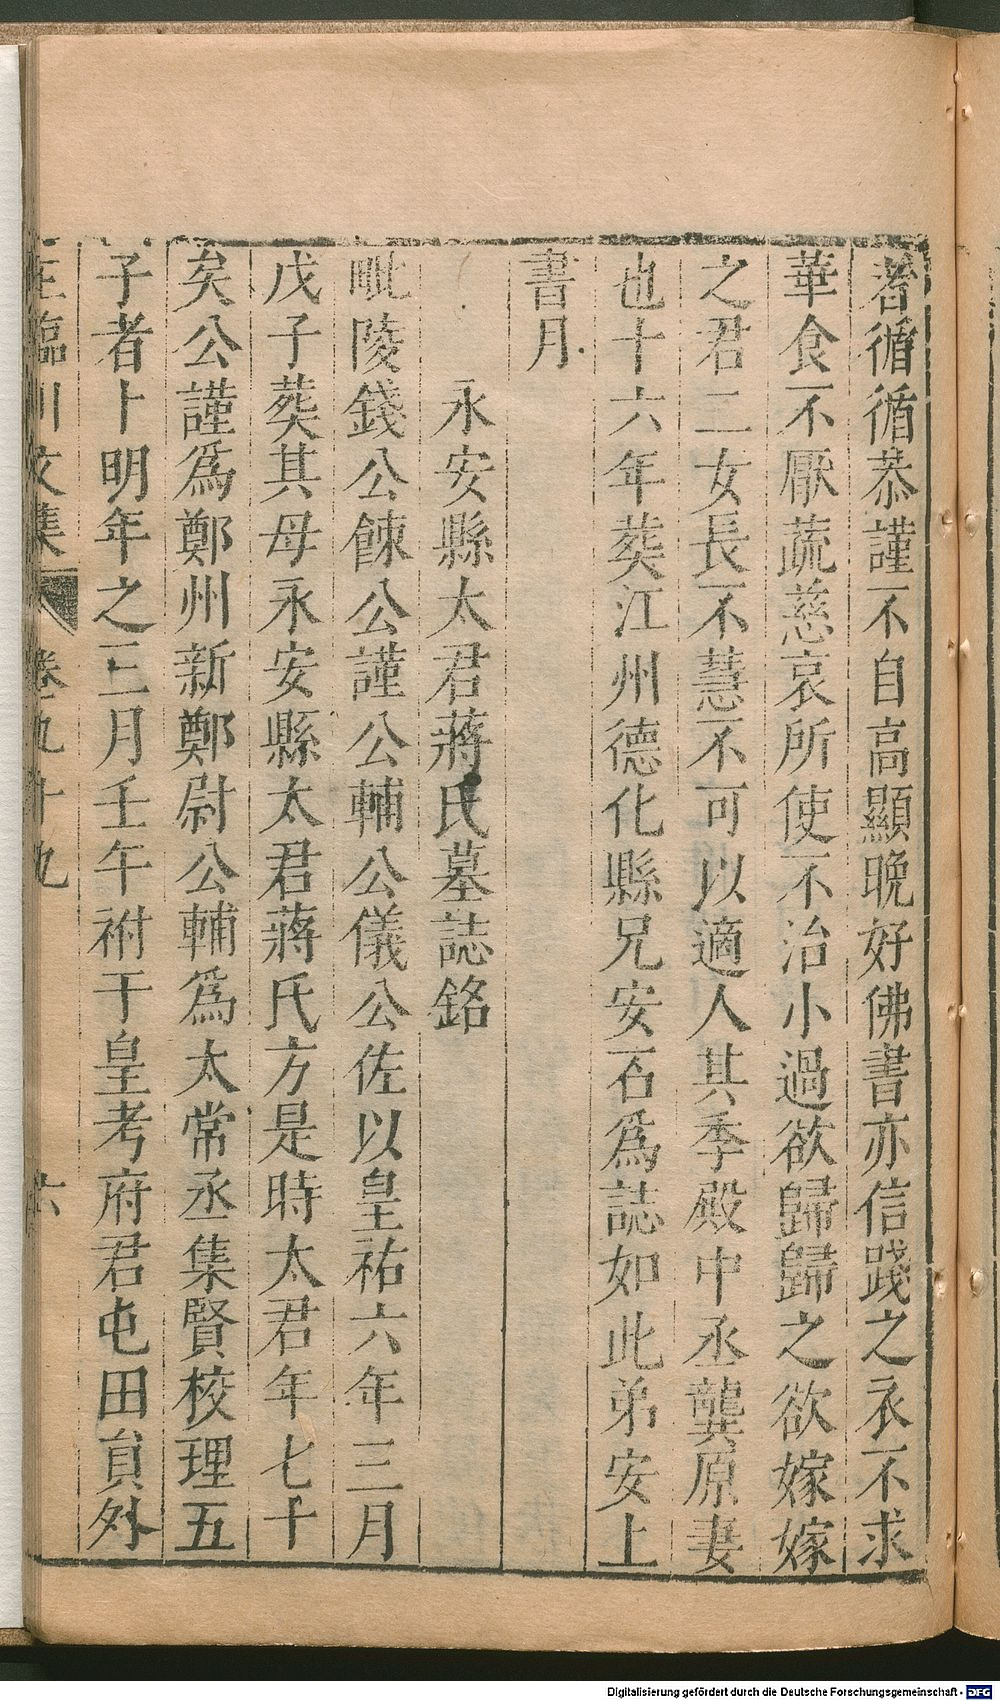 者循循恭謹不自高顯晚好佛書亦信踐之衣不求
華食不厭蔬慈哀所使不治小過欲歸歸之欲嫁嫁
之君二女長不慧不可以適人其季殿中丞龔原妻
也十六年葬江州德化縣兄安石爲誌如此弟安上
書月
永安縣太君蔣氏墓誌銘
毗陵錢公餗公謹公輔公儀公佐以皇祐六年三月
戊子葬其母永安縣太君蔣氏方是時太君年七十
矣公謹爲鄭州新鄭尉公輔爲太常丞集賢校理五
子者卜明年之三月壬午祔于皇考府君屯田員外
王臨川文集 卷九十九 六
Digitalisierung gefördert durch die Deutsche Forschungsgemeinschaft - DFG